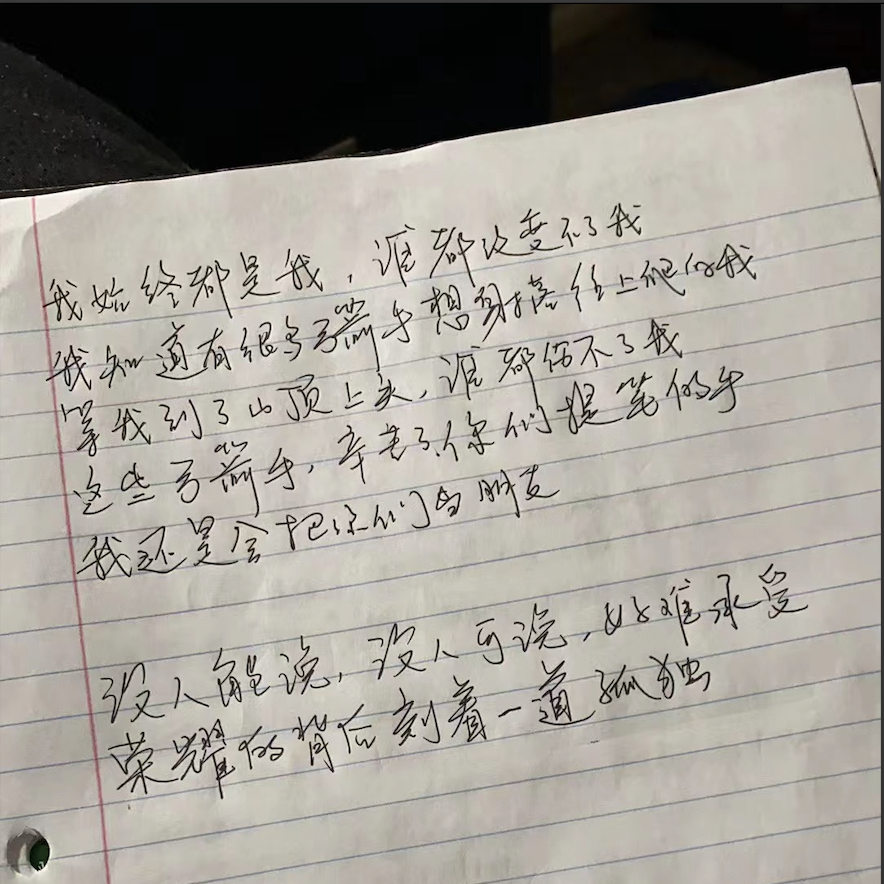 我始终都是我，谁都改变不了我
我知道有很多弓箭手想射击往上爬的我
等我到了山顶上头，谁都伤不了我
这些弓箭手，辛苦了你们提笔的手
我还是会把你们当朋友
没人能说，没人可说，好难承受
荣耀的背后刻着一道孤独